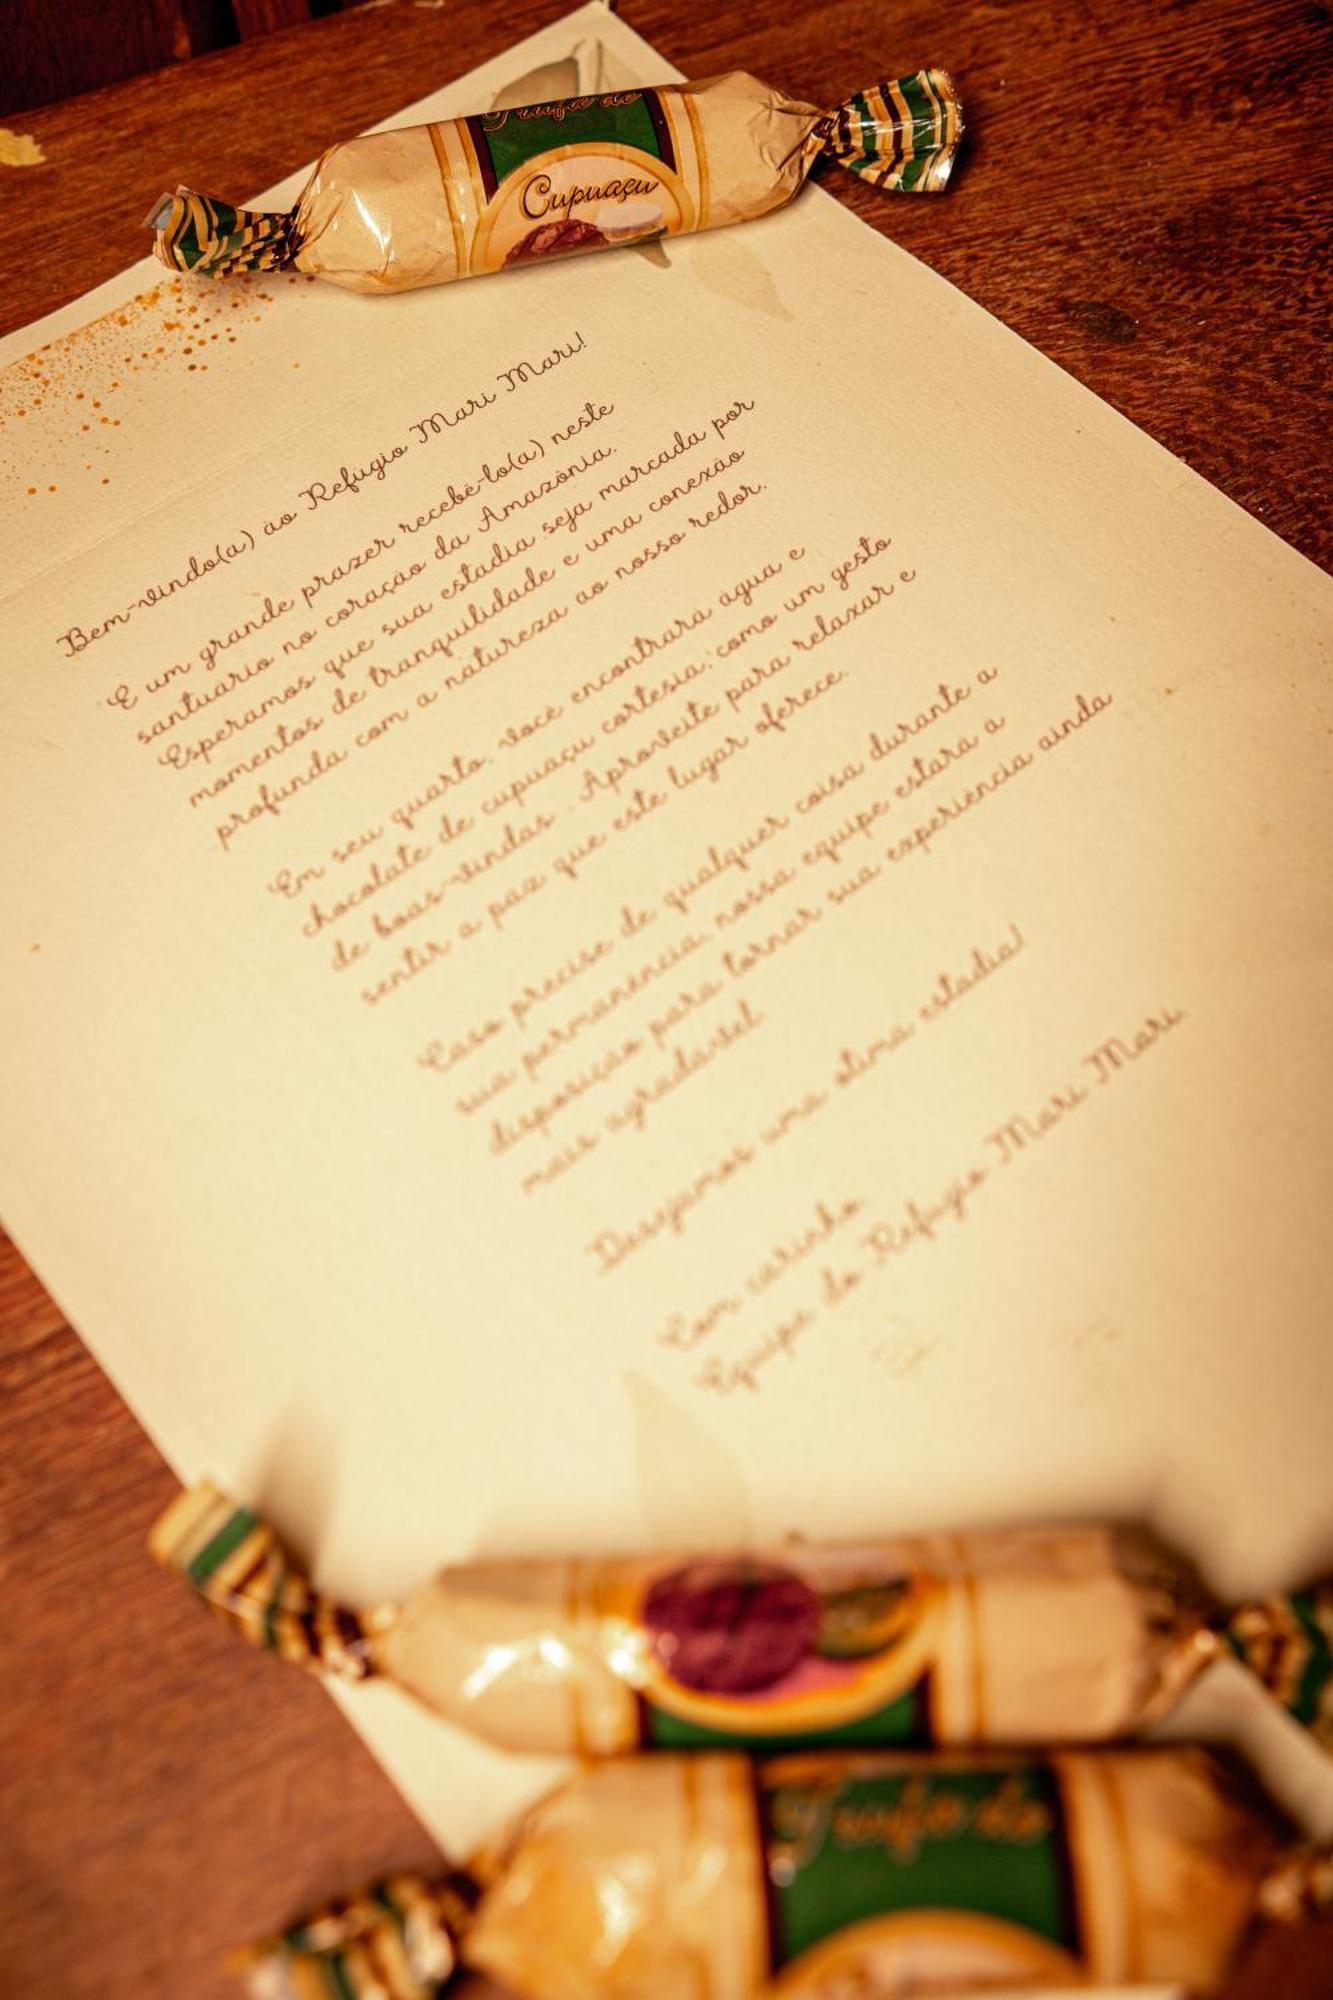 Trufa de
Cupuaçu
Bem-vindo(a) ao Refúgio Mari Mari!
É um grande prazer recebê-lo(a) neste
santuário no coração da Amazônia.
Esperamos que sua estadia seja marcada por
momentos de tranquilidade e uma conexão
profunda com a natureza ao nosso redor.
Em seu quarto, você encontrará água e
chocolate de cupuaçu cortesia, como um gesto
de boas-vindas . Aproveite para relaxar e
sentir a paz que este lugar oferece.
Caso precise de qualquer coisa durante a
sua permanência, nossa equipe estará à
disposição para tornar sua experiência ainda
mais agradável.
Desejamos uma ótima estadia!
Com carinho,
Equipe do Refúgio Mari Mari
Trufa de